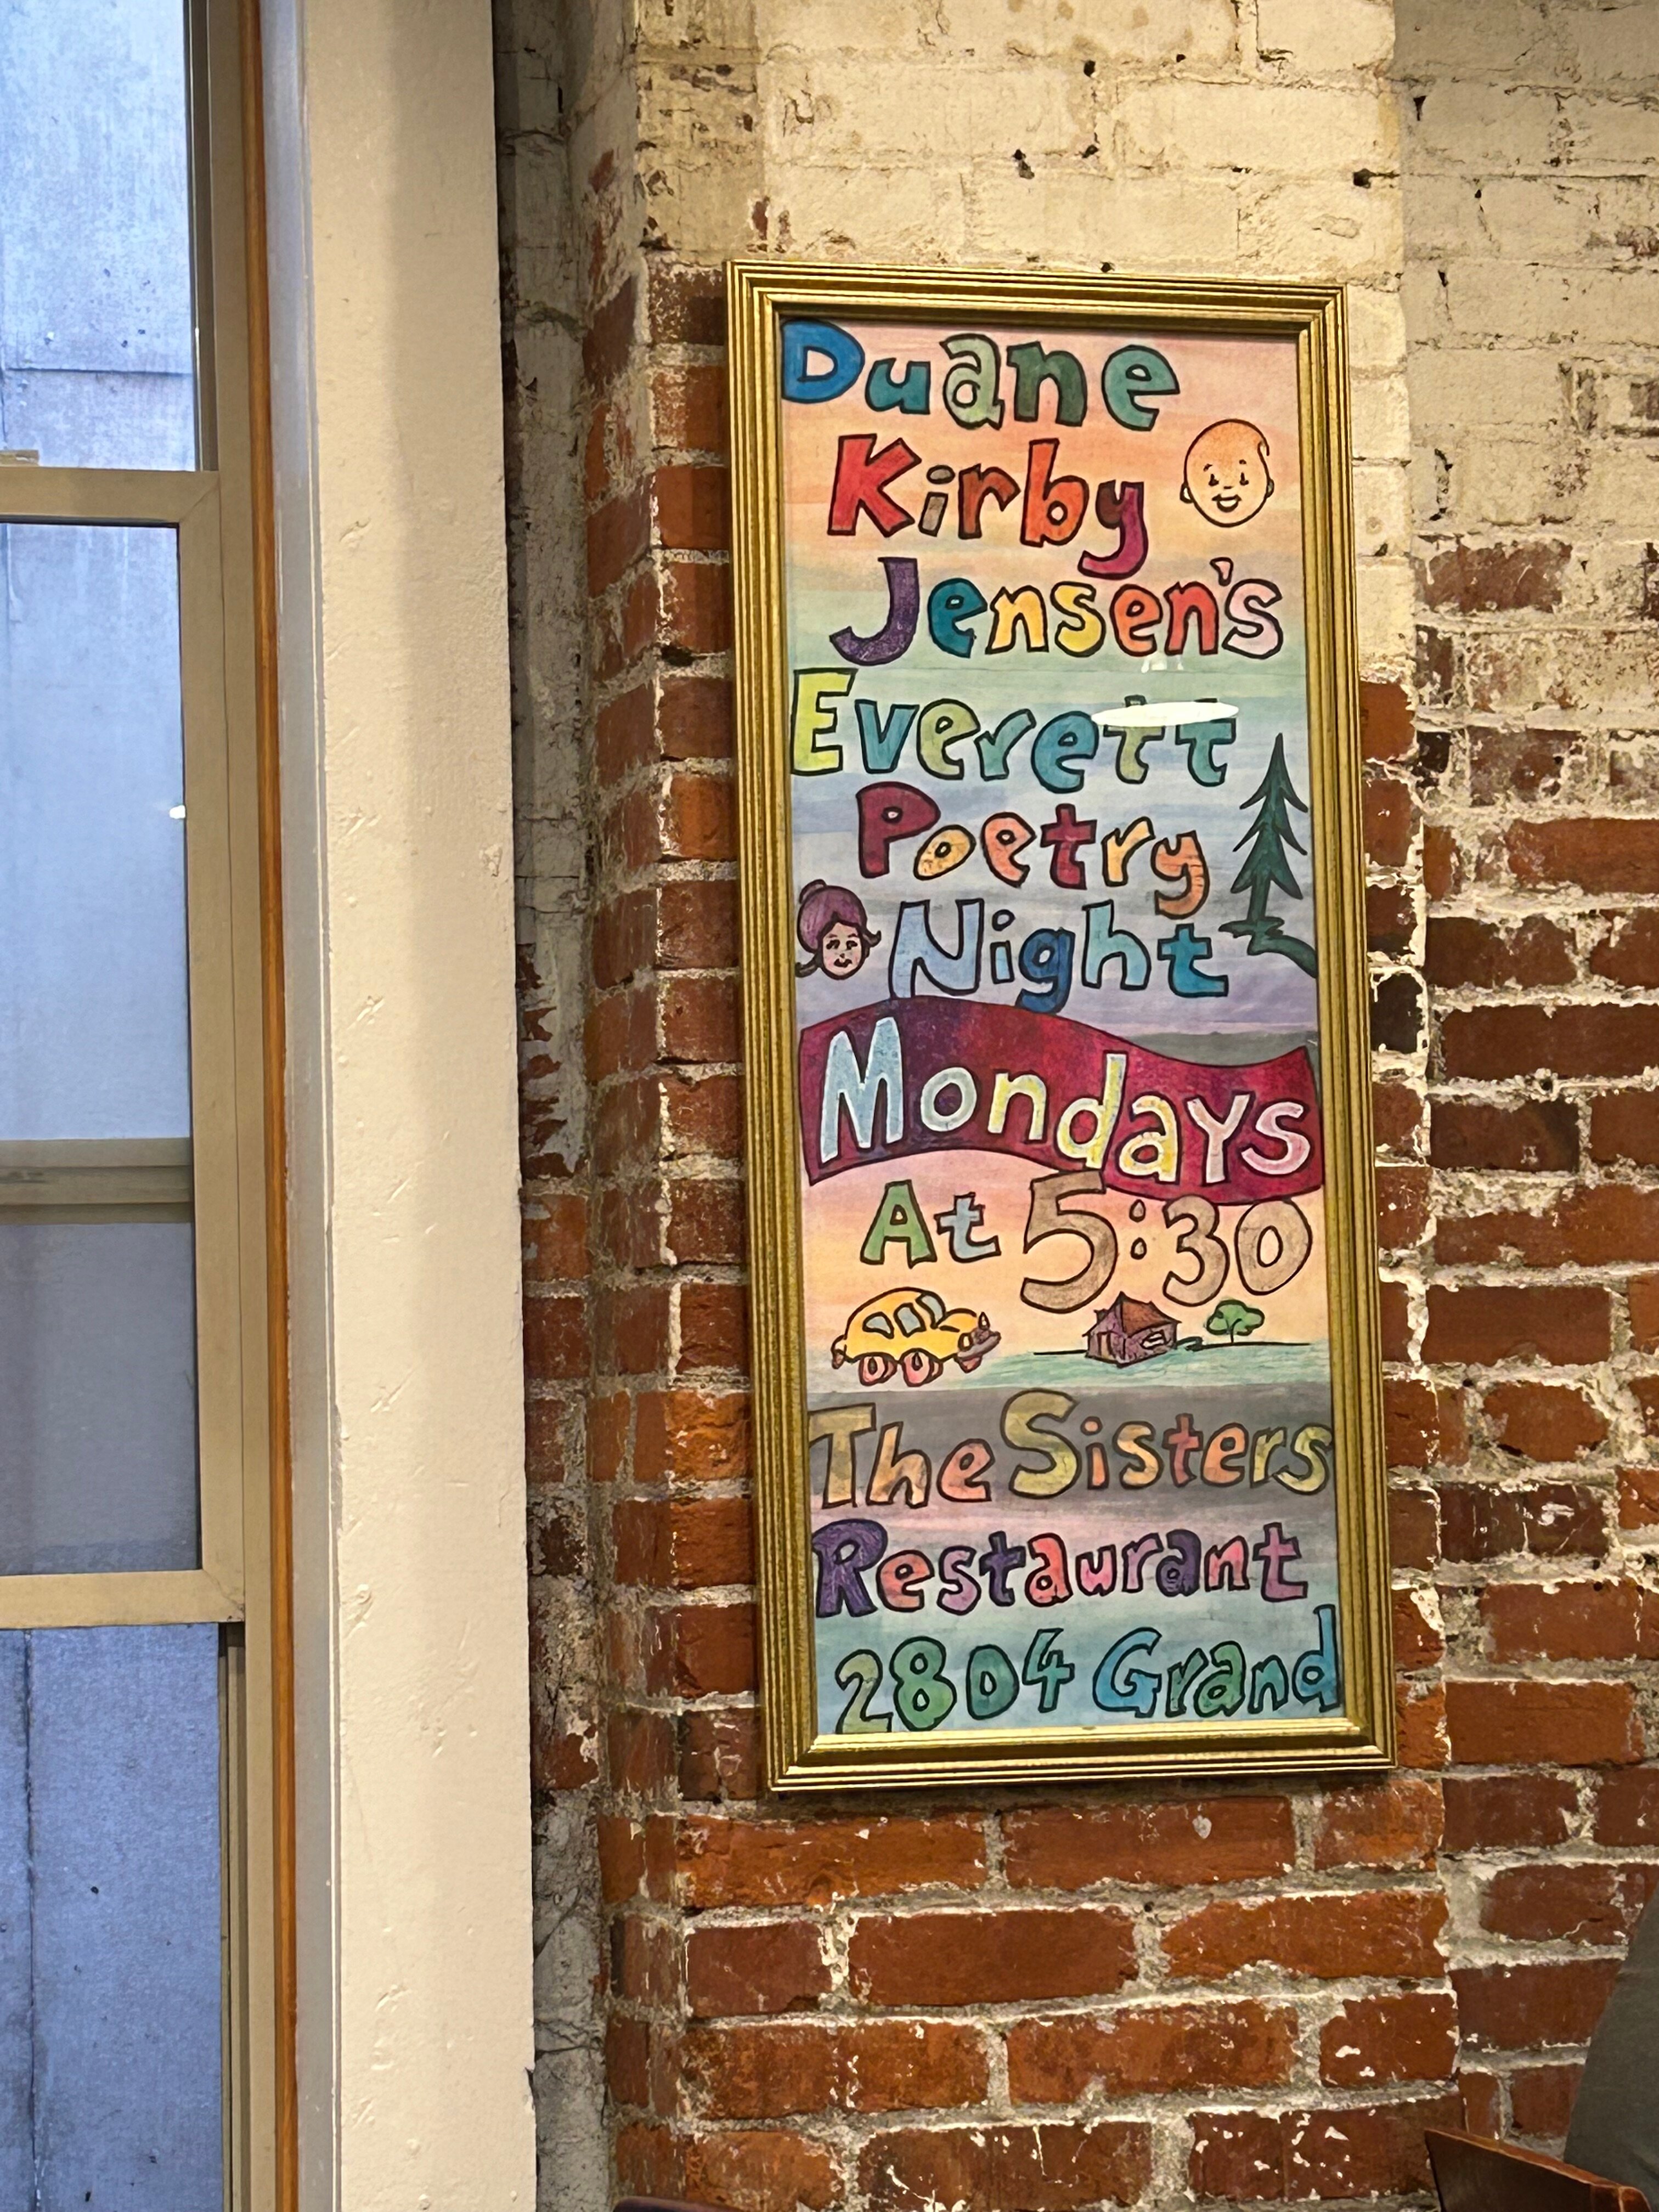 Duane
Kirby
Jensen's
Everett
Poetry
Night
Mondays
At 5:30
The Sisters
Restaurant
2804 Grand